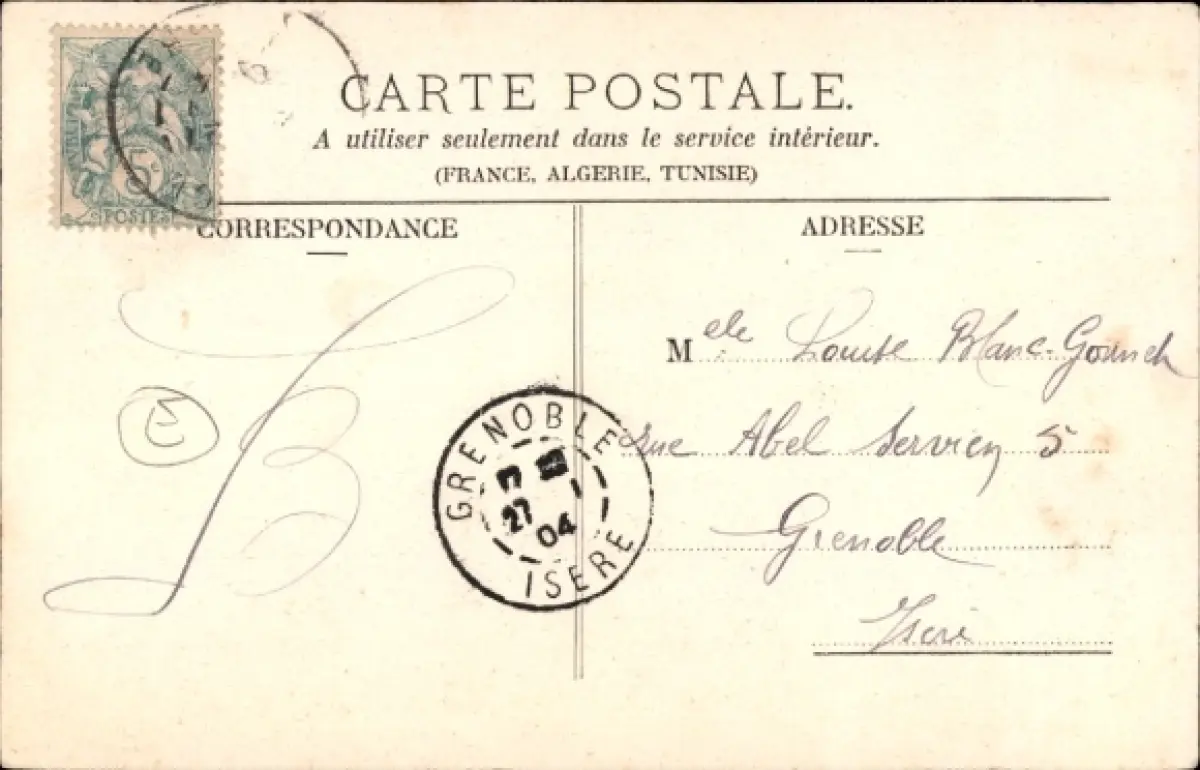 CARTE POSTALE.
A utiliser seulement dans le service intérieur.
(FRANCE, ALGERIE, TUNISIE)
5
POSTES
CORRESPONDANCE
ADRESSE
Melle Louise Blanc-
rue Abel Servien 5
Grenoble
Isère
B
GRENOBLE
27
04
ISERE